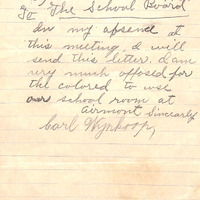 To The School Board
In my absence at
this meeting, I will
send this letter. I am
very much opposed for
the colored to use
our school room at
Airmont Sincerely
Carl Wynkoop,